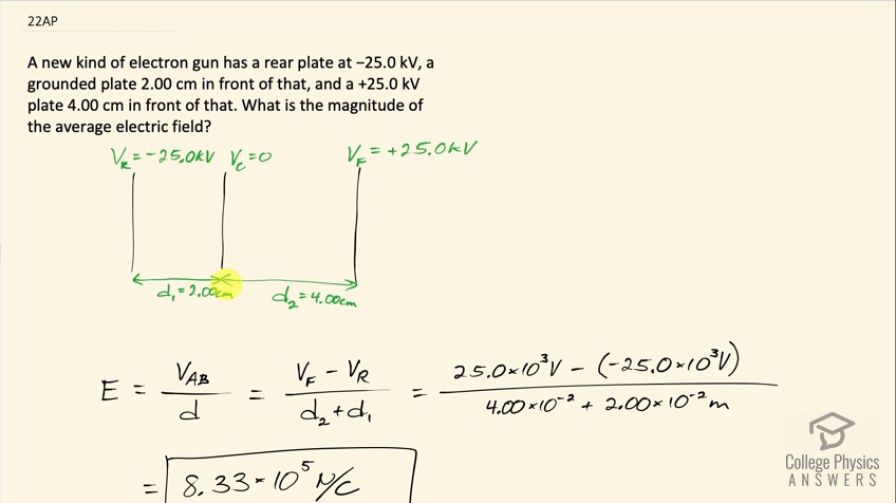 22AP
A new kind of electron gun has a rear plate at −25.0 kV, a
grounded plate 2.00 cm in front of that, and a +25.0 kV
plate 4.00 cm in front of that. What is the magnitude of
the average electric field?
V_R = -25.0kV V_C = 0 V_F = +25.0kV
d₁ = 2.00cm d₂ = 4.00cm
E = V_AB / d = (V_F - V_R) / (d₂ + d₁) = (25.0×10³V - (-25.0×10³V)) / (4.00×10⁻² + 2.00×10⁻² m)
= 8.33×10⁵ N/C
College Physics
ANSWERS